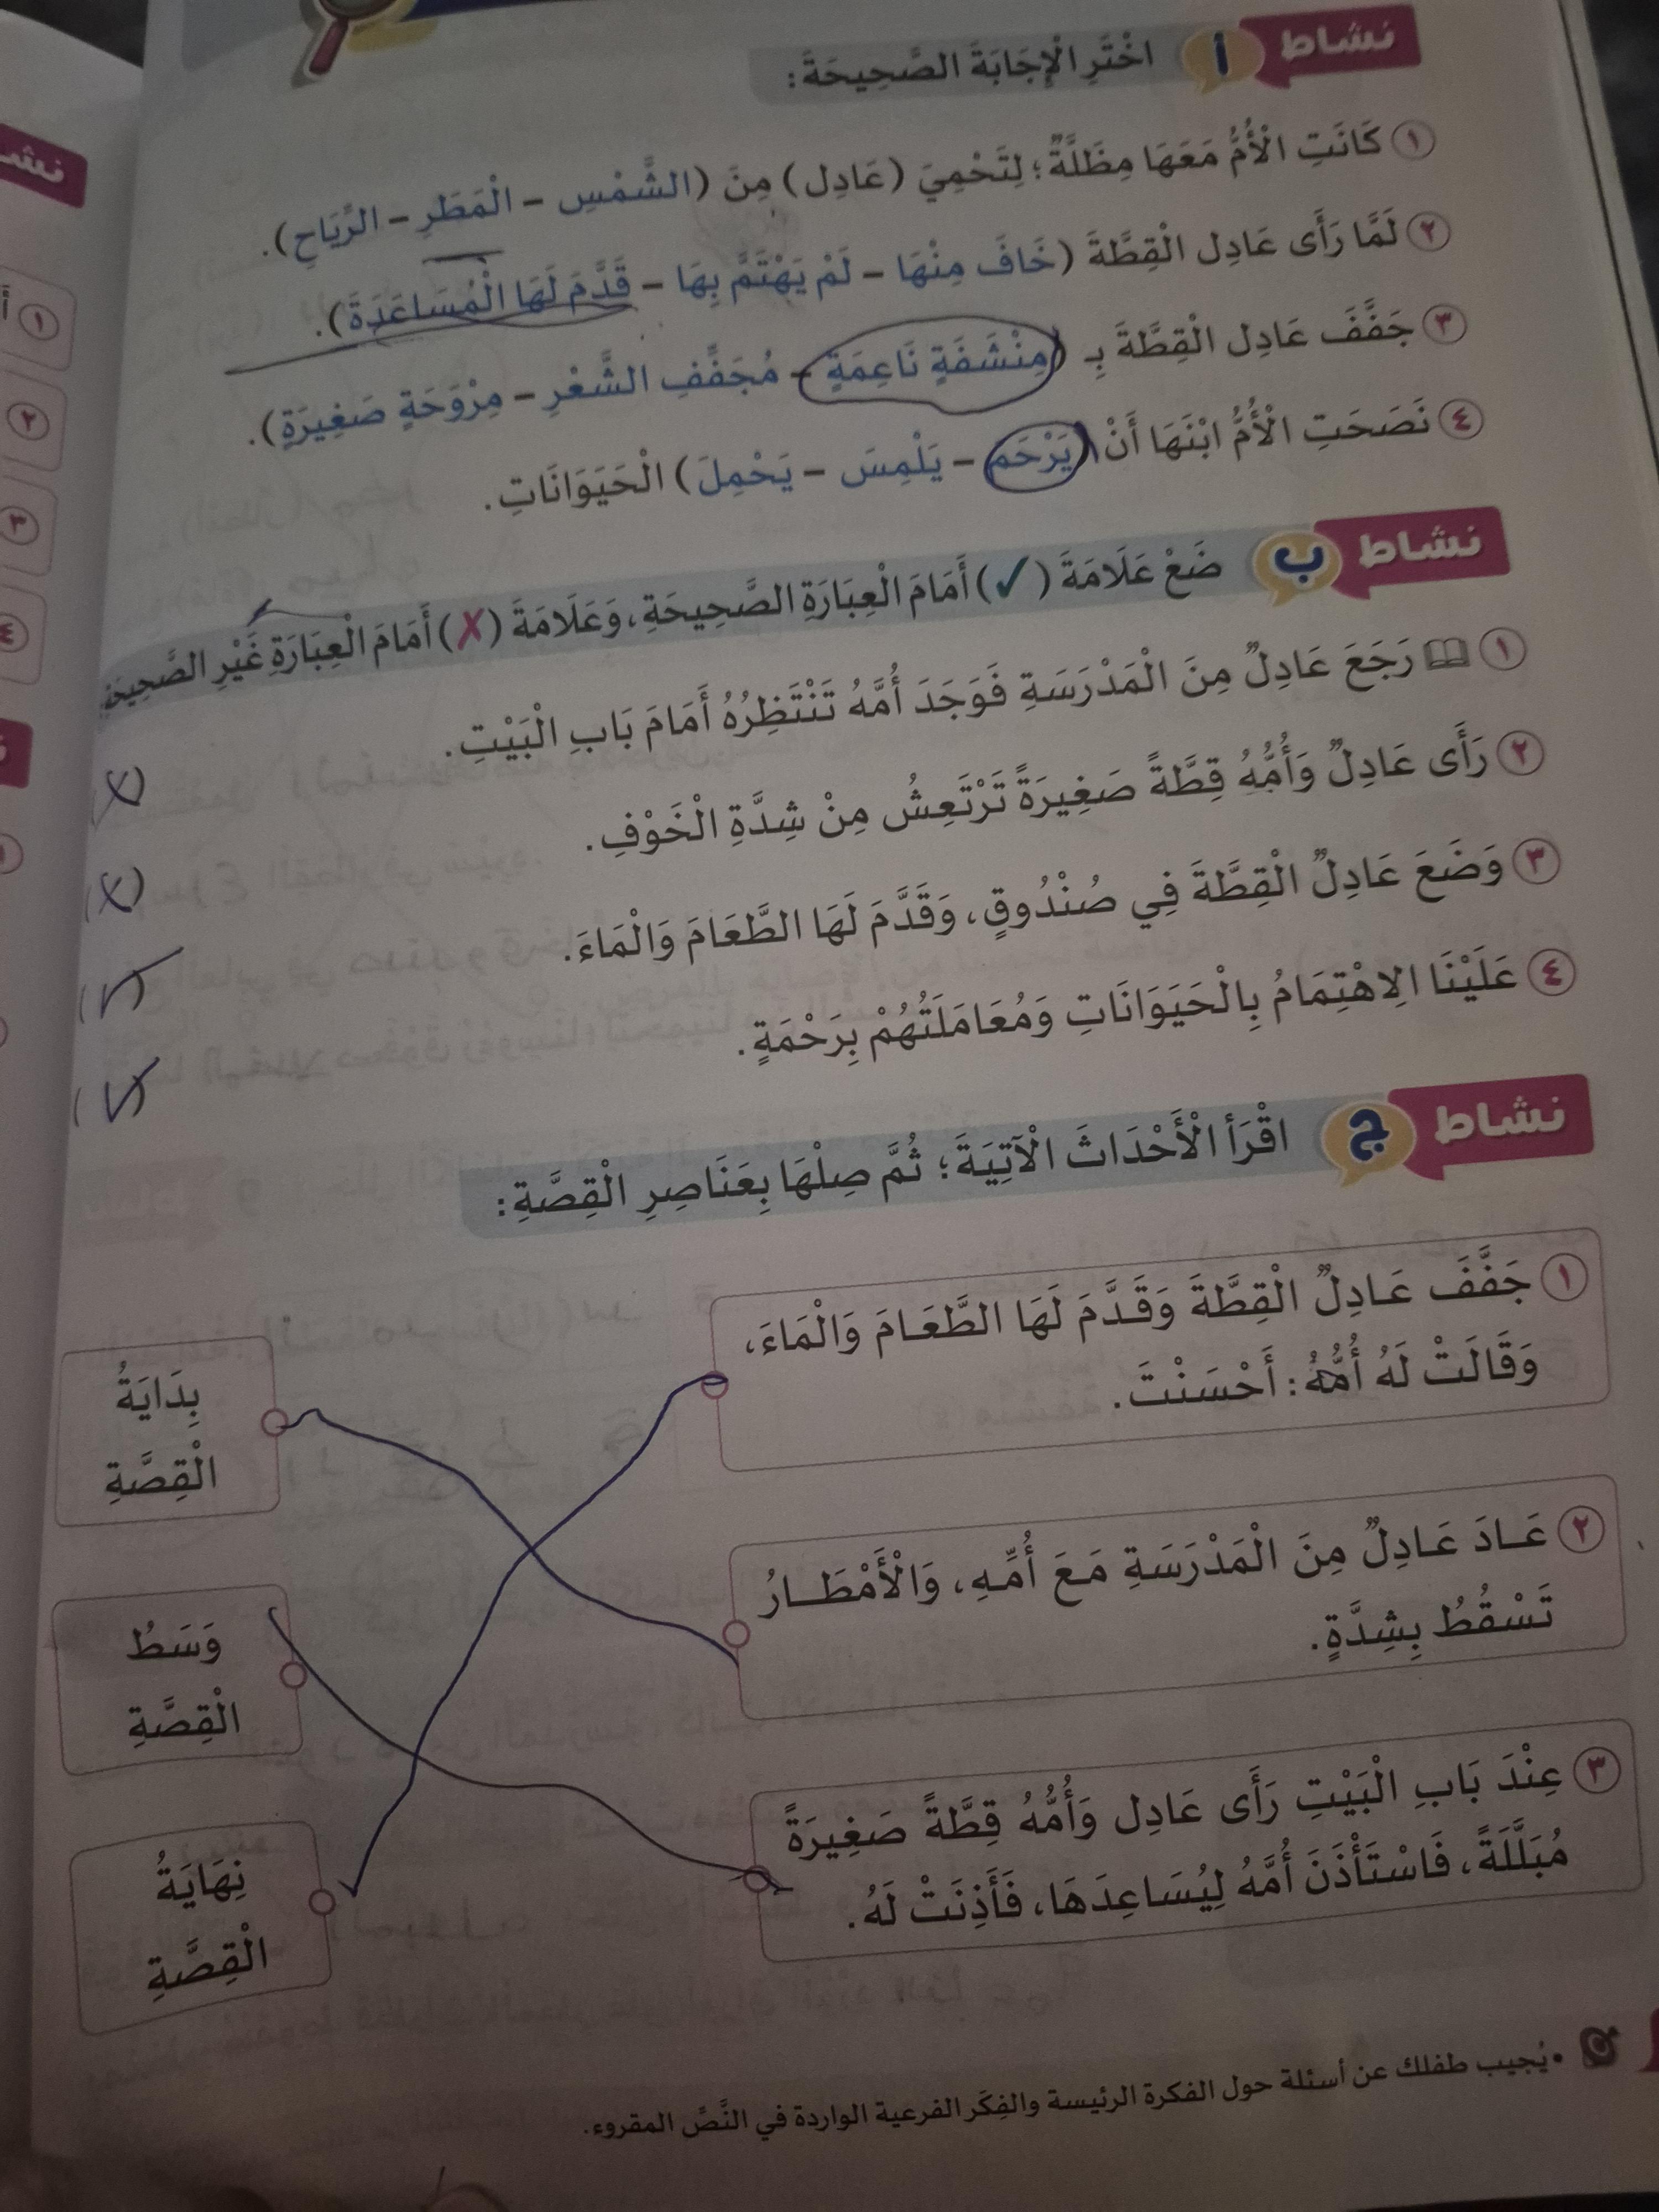 نشاط أ اخْتَرِ الْإِجَابَةَ الصَّحِيحَةَ:
١ كَانَتِ الْأُمُّ مَعَهَا مِظَلَّةٌ؛ لِتَحْمِيَ (عَادِل) مِنَ (الشَّمْسِ – الْمَطَرِ – الرِّيَاحِ).
٢ لَمَّا رَأَى عَادِل الْقِطَّةَ (خَافَ مِنْهَا – لَمْ يَهْتَمَّ بِهَا – قَدَّمَ لَهَا الْمُسَاعَدَةَ).
٣ جَفَّفَ عَادِل الْقِطَّةَ بِـ (مِنْشَفَةٍ نَاعِمَةٍ – مُجَفِّفِ الشَّعْرِ – مِرْوَحَةٍ صَغِيرَةٍ).
٤ نَصَحَتِ الْأُمُّ ابْنَهَا أَنْ (يَرْحَمَ – يَلْمِسَ – يَحْمِلَ) الْحَيَوَانَاتِ.
نشاط ب ضَعْ عَلَامَةَ (✓) أَمَامَ الْعِبَارَةِ الصَّحِيحَةِ، وَعَلَامَةَ (✗) أَمَامَ الْعِبَارَةِ غَيْرِ الصَّحِيحَةِ
١ رَجَعَ عَادِلٌ مِنَ الْمَدْرَسَةِ فَوَجَدَ أُمَّهُ تَنْتَظِرُهُ أَمَامَ بَابِ الْبَيْتِ. (✗)
٢ رَأَى عَادِلٌ وَأُمُّهُ قِطَّةً صَغِيرَةً تَرْتَعِشُ مِنْ شِدَّةِ الْخَوْفِ. (✗)
٣ وَضَعَ عَادِلٌ الْقِطَّةَ فِي صُنْدُوقٍ، وَقَدَّمَ لَهَا الطَّعَامَ وَالْمَاءَ. (✓)
٤ عَلَيْنَا الِاهْتِمَامُ بِالْحَيَوَانَاتِ وَمُعَامَلَتُهُمْ بِرَحْمَةٍ. (✓)
نشاط ج اقْرَأ الْأَحْدَاثَ الْآتِيَةَ؛ ثُمَّ صِلْهَا بِعَنَاصِرِ الْقِصَّةِ:
١ جَفَّفَ عَادِلٌ الْقِطَّةَ وَقَدَّمَ لَهَا الطَّعَامَ وَالْمَاءَ،
وَقَالَتْ لَهُ أُمُّهُ: أَحْسَنْتَ.
بِدَايَةُ
الْقِصَّةِ
٢ عَادَ عَادِلٌ مِنَ الْمَدْرَسَةِ مَعَ أُمِّهِ، وَالْأَمْطَارُ
تَسْقُطُ بِشِدَّةٍ.
وَسَطُ
الْقِصَّةِ
٣ عِنْدَ بَابِ الْبَيْتِ رَأَى عَادِل وَأُمُّهُ قِطَّةً صَغِيرَةً
مُبَلَّلَةً، فَاسْتَأْذَنَ أُمَّهُ لِيُسَاعِدَهَا، فَأَذِنَتْ لَهُ.
نِهَايَةُ
الْقِصَّةِ
• يُجيب طفلك عن أسئلة حول الفكرة الرئيسة والفِكَر الفرعية الواردة في النَّصِّ المقروء.